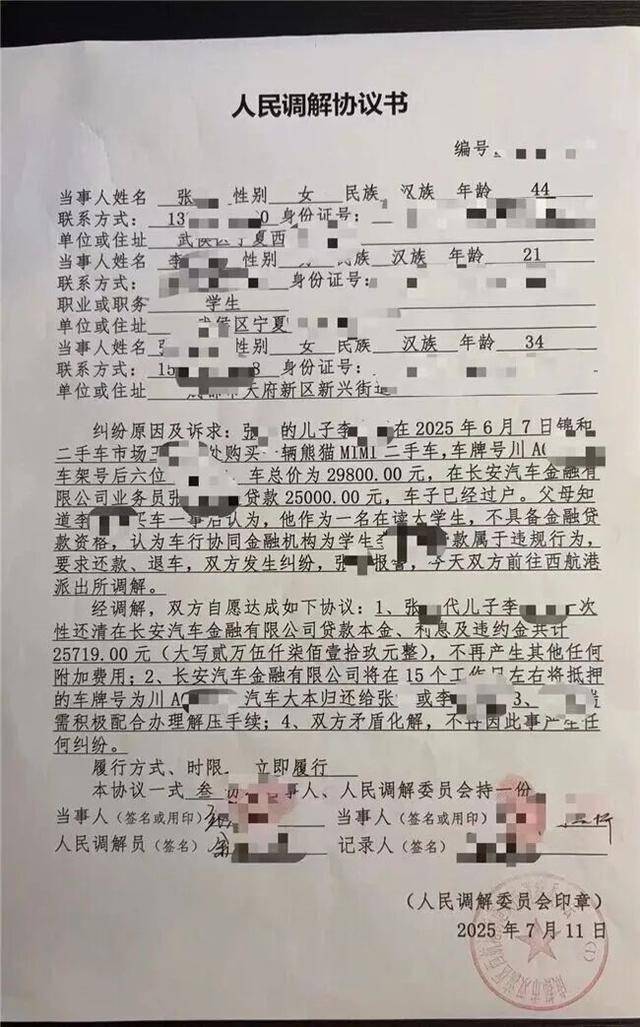 人民调解协议书
编号
当事人姓名 张 性别 女 民族 汉族 年龄 44
联系方式：13 0 身份证号：
单位或住址 武侯区宁夏西
当事人姓名 李 性别 民族 汉族 年龄 21
联系方式： 身份证号：
职业或职务 学生
单位或住址 武侯区宁夏
当事人姓名 张 性别 女 民族 汉族 年龄 34
联系方式：15 8 身份证号：
单位或住址 成都市天府新区新兴街道
纠纷原因及诉求：张 的儿子李 在2025年6月7日锦和
二手车市场 处购买一辆熊猫MIMI二手车，车牌号川A
车架号后六位 车总价为29800.00元，在长安汽车金融有
限公司业务员张 贷款25000.00元，车子已经过户。父母知
道李 买车一事后认为，他作为一名在读大学生，不具备金融贷
款资格，认为车行协同金融机构为学生 款属于违规行为，
要求还款、退车，双方发生纠纷，张 报警，今天双方前往西航港
派出所调解。
经调解，双方自愿达成如下协议：1、张 代儿子李 一次
性还清在长安汽车金融有限公司贷款本金、利息及违约金共计
25719.00元（大写贰万伍仟柒佰壹拾玖元整），不再产生其他任何
附加费用；2、长安汽车金融有限公司将在15个工作日左右将抵押
的车牌号为川A 汽车大本归还给张 或李 3、
需积极配合办理解压手续；4、双方矛盾化解，不再因此事产生任
何纠纷。
履行方式、时限 立即履行
本协议一式 叁 份 当事人、人民调解委员会持一份
当事人（签名或用印） 当事人（签名或用印）
人民调解员（签名） 记录人（签名）
（人民调解委员会印章）
2025年7月11日